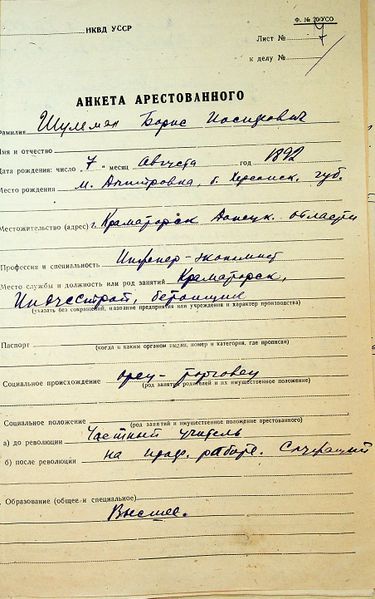 Ф. № 20/УСО
НКВД УССР
Лист № 9
к делу №
АНКЕТА АРЕСТОВАННОГО
Фамилия Шулеман Борис Иосифович
Имя и отчество
Дата рождения: число 7 месяц Августа год 1892
Место рождения м. Дмитровка, б. Херсонск. губ.
Местожительство (адрес) г. Краматорск Донецк. области
Профессия и специальность Инженер-экономист
Место службы и должность или род занятий Краматорск,
Индустрой, бетонщик
(указать без сокращений, название предприятия или учреждения и характер производства)
Паспорт
(когда и каким органом выдан, номер и категория, где прописан)
Социальное происхождение отец - торговец
(род занятий родителей и их имущественное положение)
Социальное положение
(род занятий и имущественное положение арестованного)
а) до революции Частный учитель
б) после революции на проф. работе. Служащий
Образование (общее и специальное)
Высшее.